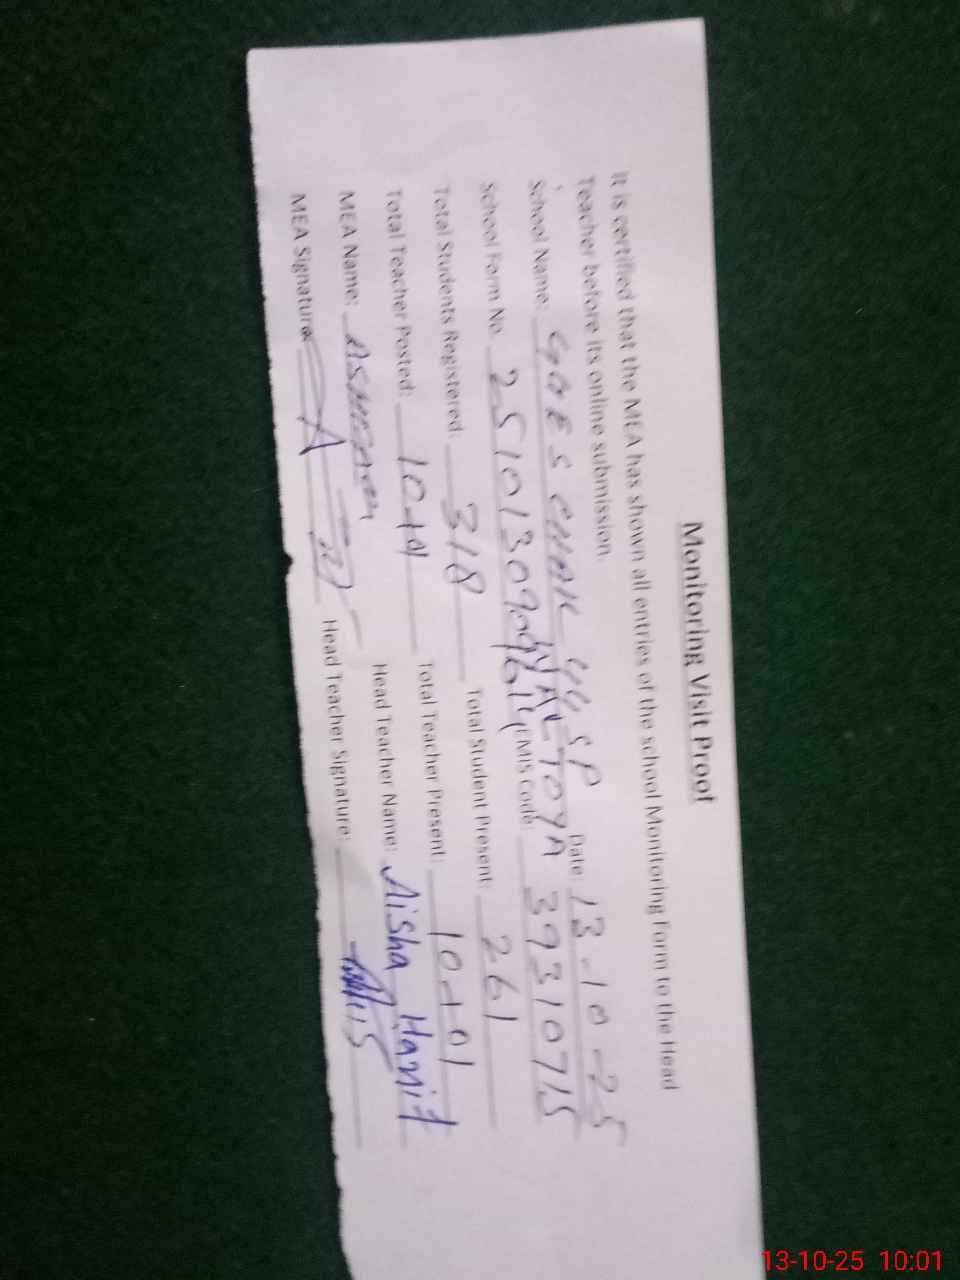 Monitoring Visit Proof
It is certified that the MEA has shown all entries of the school Monitoring Form to the Head
Teacher before its online submission.
School Name: GGES CHAK 44 SP Date 13-10-25
WALTOYA
School Form No. 2510130909611 EMIS Code: 39310715
Total Students Registered: 318 Total Student Present: 261
Total Teacher Posted: 10+01 Total Teacher Present: 10+01
MEA Name: Head Teacher Name: Aisha Hanif
MEA Signature: Head Teacher Signature:
13-10-25 10:01